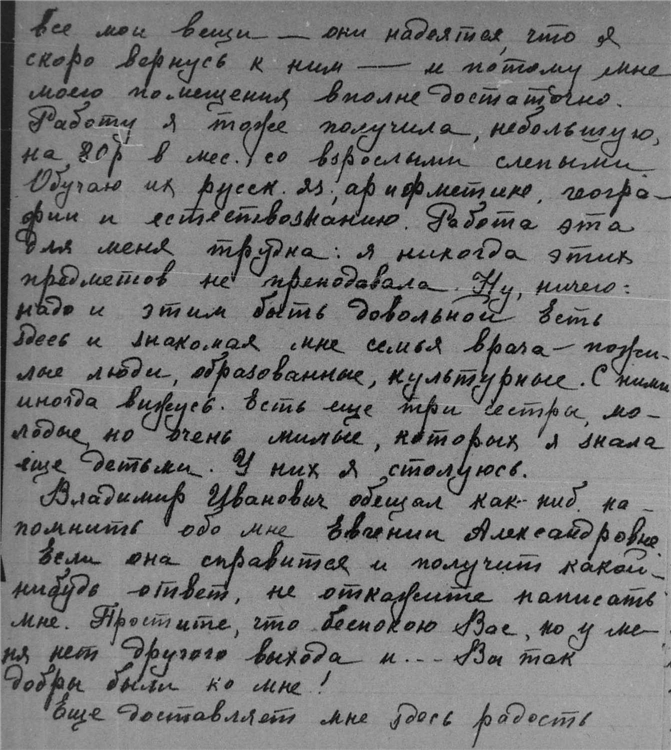 все мои вещи — они надеятся, что я
скоро вернусь к ним — и потому мне
моего помещения вполне достаточно.
Работу я тоже получила, небольшую,
на 80р в мес. со взрослыми слепыми.
Обучаю их русск. яз, арифметике, геогра-
фии и естествознанию. Работа эта
для меня трудна: я никогда этих
предметов не преподавала. Ну, ничего:
надо и этим быть довольной. Есть
здесь и знакомая мне семья врача — пожи-
лые люди, образованные, культурные. С ними
иногда вижусь. Есть еще три сестры, мо-
лодые, но очень милые, которых я знала
еще детьми. У них я столуюсь.
Владимир Иванович обещал как-ниб. на-
помнить обо мне Евгении Александровне
Если она справится и получит какой-
нибудь ответ, не откажите написать
мне. Простите, что беспокою Вас, но у ме-
ня нет другого выхода и.... Вы так
добры были ко мне!
Еще доставляет мне здесь радость